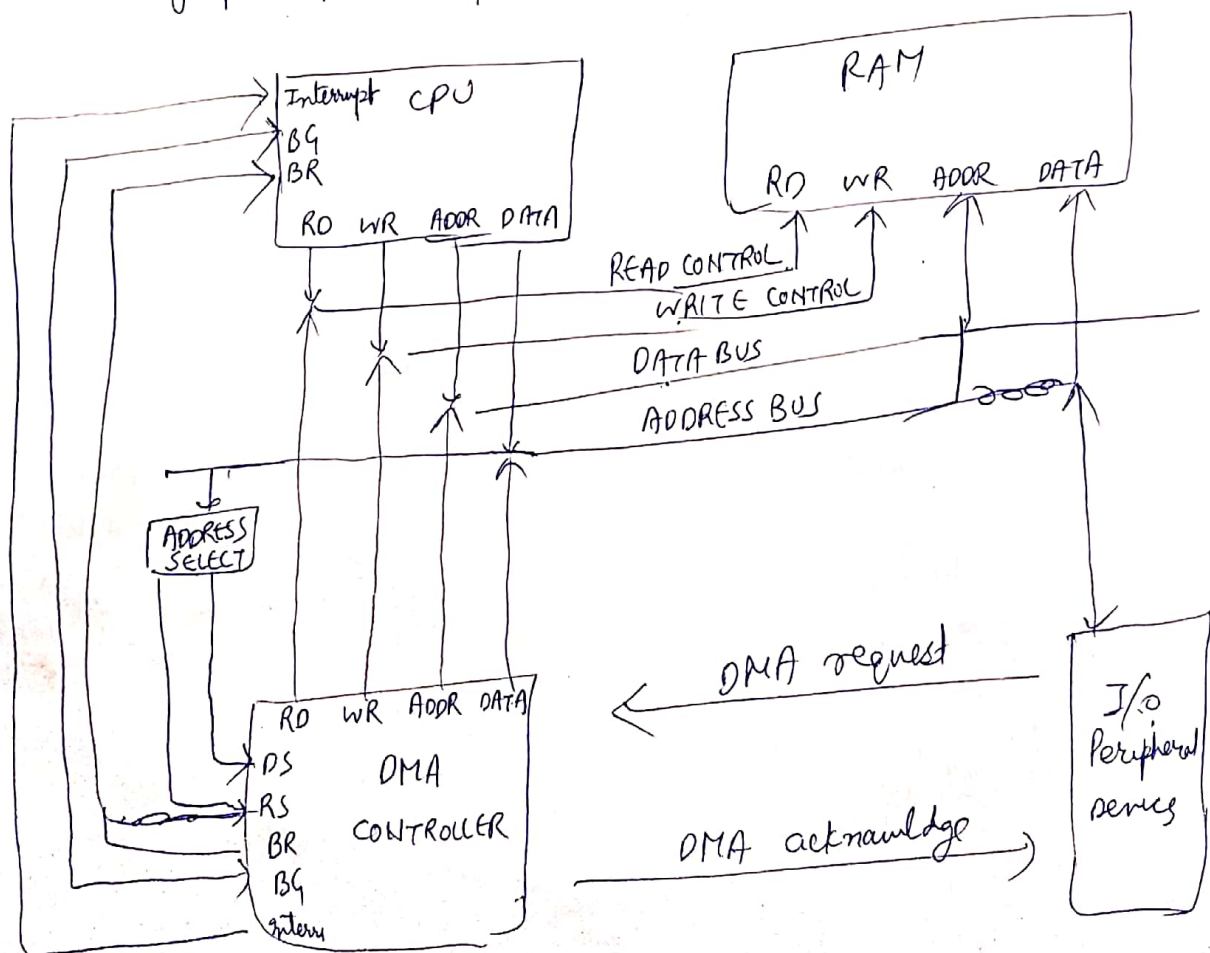 Interrupt CPU
BG
BR
RD WR ADDR DATA
RAM
RD WR ADDR DATA
READ CONTROL
WRITE CONTROL
DATA BUS
ADDRESS BUS
ADDRESS
SELECT
RD WR ADDR DATA
DS
RS
BR
BG
Interru
DMA
CONTROLLER
DMA request
DMA acknowldge
I/O
Peripheral